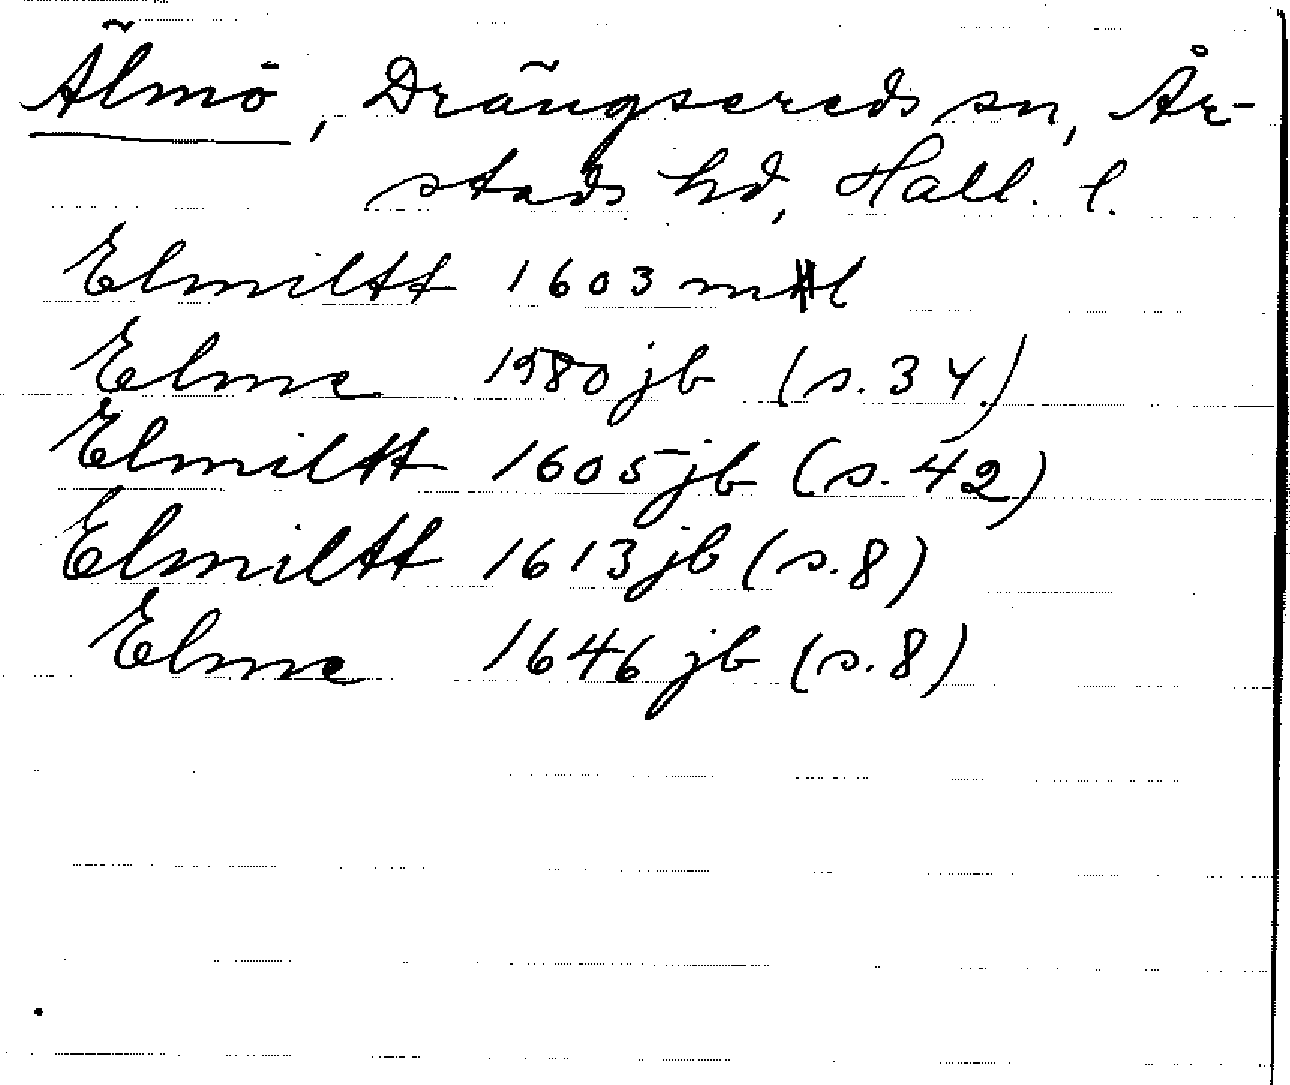 Älmö, Drängsereds sn, År-
stads hd, Hall. l.
Elmiltt 1603 mtl
Elme 1980 jb (s. 34)
Elmiltt 1605 jb (s. 42)
Elmiltt 1613 jb (s. 8)
Elme 1646 jb (s. 8)